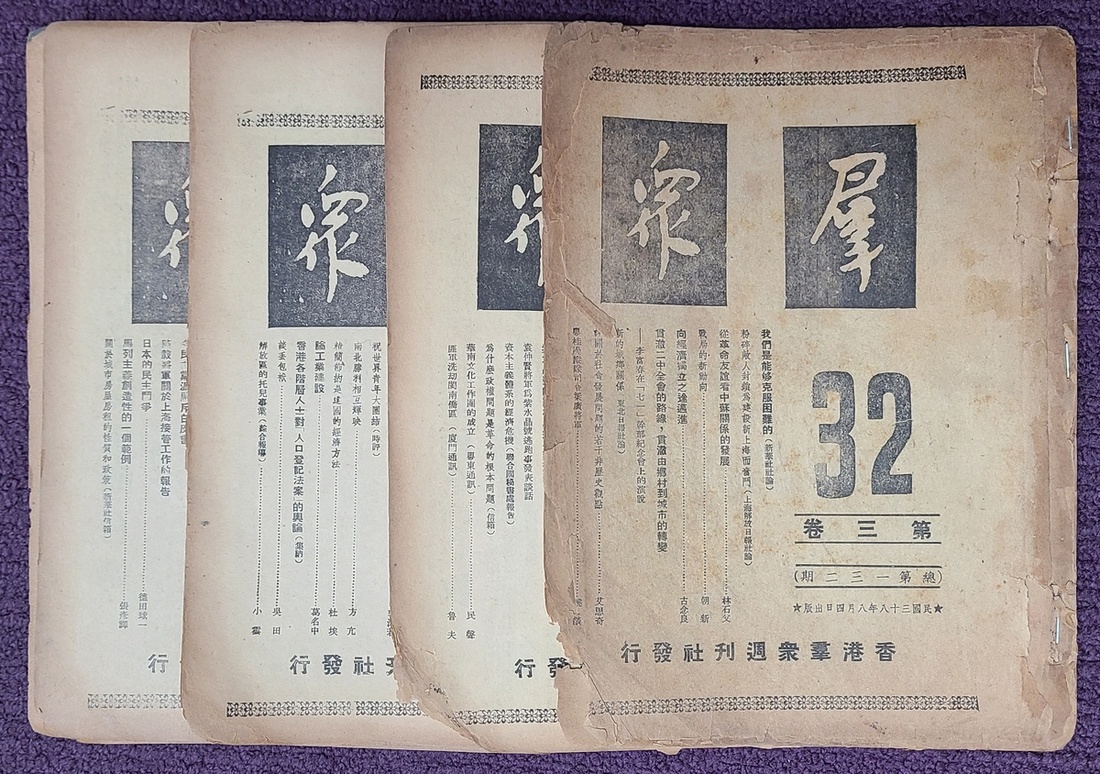 羣衆
32
第三卷
(總第一三二期)
★民國三十八年八月四日出版★
香港羣衆週刊社發行
我們是能够克服困難的(新華社社論)
粉碎敵人封鎖爲建設新上海而奮鬥(上海解放日報社論)
從革命友誼看中蘇關係的發展……林石父
戰局的新動向……胡新
向經濟獨立之途邁進……古念良
貫澈二中全會的路線,貫澈由鄉村到城市的轉變
——李富春在「七一」幹部紀念會上的演說
新的城鄉關係(東北日報社論)
關於社會發展問題的若干非歷史觀點……艾思奇
衆
袁仲賢將軍爲紫水晶號逃跑事發表談話
資本主義體系的經濟危機(聯合國秘書處報告)
爲什麼政權問題是革命的根本問題(信箱)
華南文化工作團的成立(粵東通訊)……民聲
匪軍洗刧閩南僑區(廈門通訊)……魯夫
發行
衆
祝世界青年大團結(時評)
南北勝利相互輝映……方亢
精簡節約是建國的經濟方法……杜埃
論工業建設……萬名中
香港各階層人士對「人口登記法案」的輿論(集納)
談丢包袱……吳田
解放區的托兒事業(綜合報導)……小雲
刊社發行
衆
陳毅將軍關於上海接管工作的報告
日本的民主鬥爭……德田球一
馬列主義創造性的一個範例……張彥譯
關於城市房屋房租的性質和政策(新華社信箱)
行